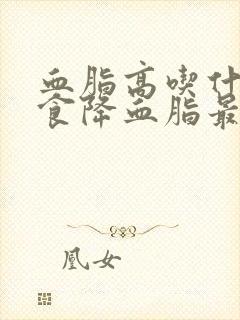 血脂高喫什
食降血脂最
凰女